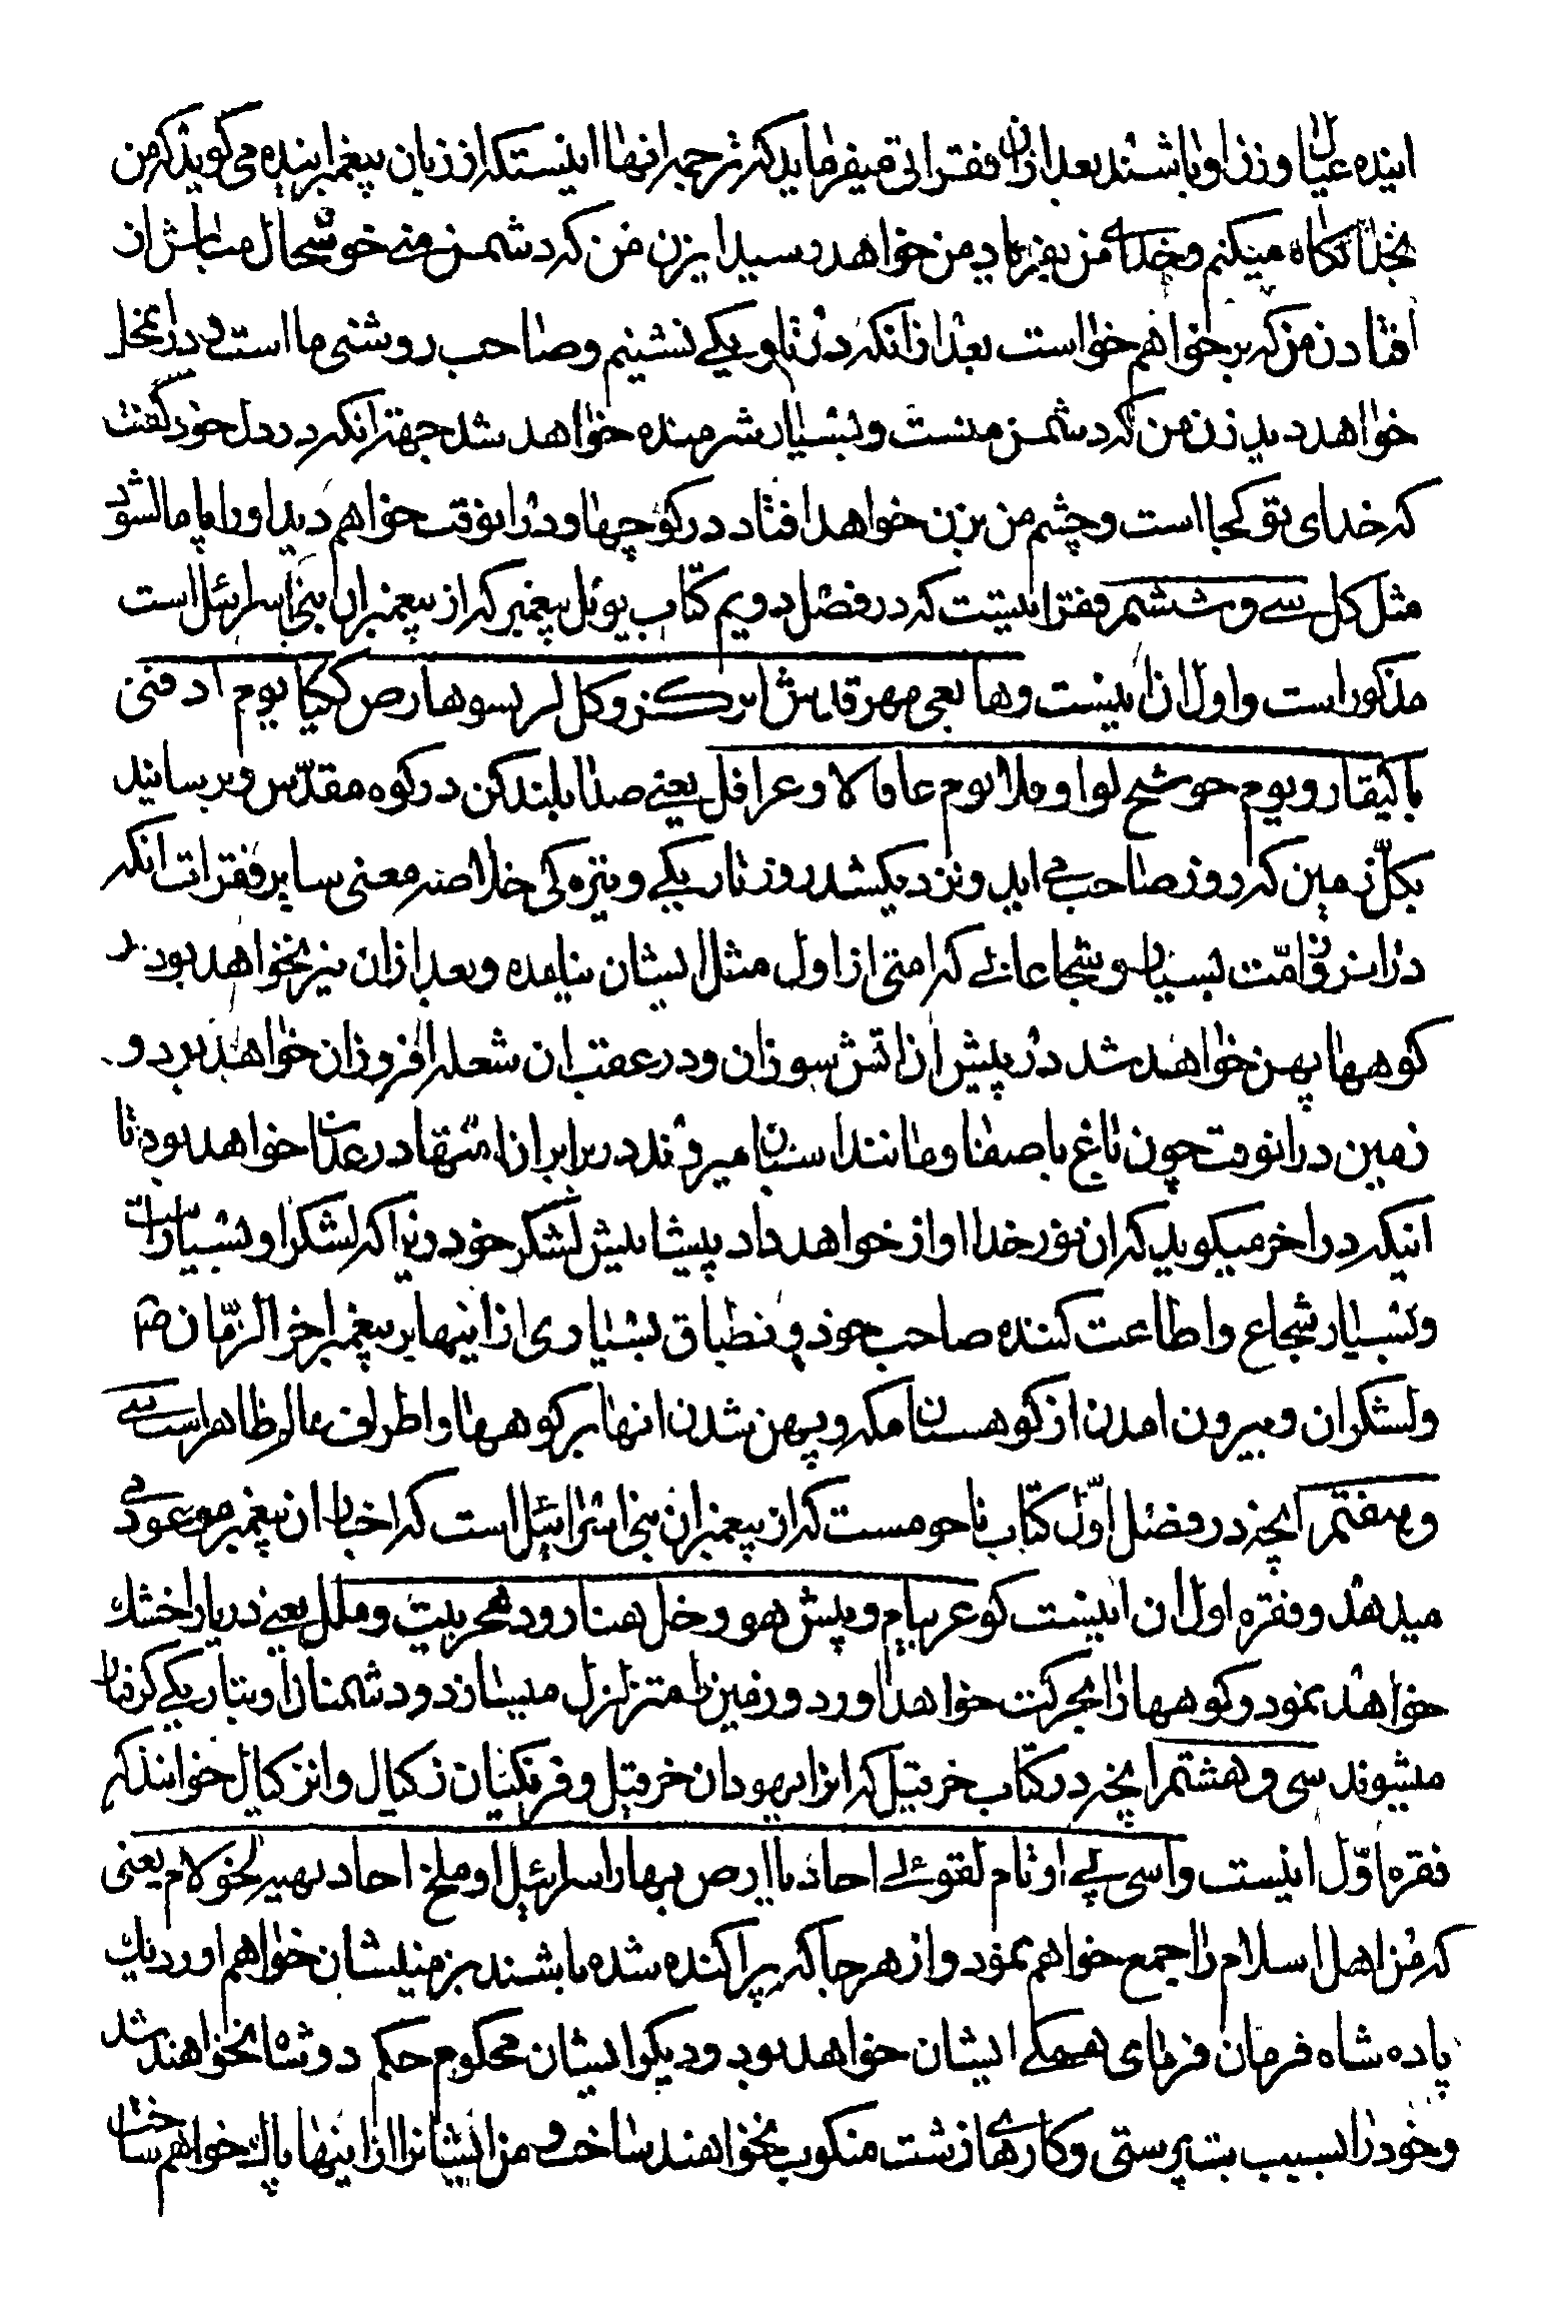 اینده عیال و زن او باشند بعد ازان فقراتی میفرماید که ترجمه انها اینستکه از زبان پیغمبر اینده می کوید که من
بخدا نکاه میکنم و خدای من بفریاد من خواهد رسید ایزن من که دشمن منی خوشحال مباش از
افتادن من که بر خواهم خواست بعد ازانکه در تاریکی نشینم و صاحب روشنی ما است
خواهد دید زن من که دشمن منست و بسیار شرمنده خواهد شد جهة انکه در دل خود گفت
که خدای تو کجا است و چشم من بزن خواهد افتاد در کوچها و درانوقت خواهم دید او را پامال شود
مثل کل سی و ششم فقراتیست که در فصل دویم کتاب یوئل پیغمبر که از پیغمبران بنی اسرائیل است
مذکور است و اول ان اینست وها بعی مهر قدش ایرکز و کل لریسوهارص ککیا یوم ادفنی
باکیقار و یوم حوشخ لوا و فلا یوم عافالا و عرافل یعنی صدا بلند کن در کوه مقدّس و برسانید
بکلّ زمین که روز صاحب می اید و نزدیکشد روز تاریکی و تیره کی خلاصه معنی سایر فقرات انکه
درانروز امّت بسیار و شجاعانی که امتی از اول مثل ایشان نیامده و بعد ازان نیز نخواهد بود بر
کوهها پهن خواهند شد در پیش ان اتش سوزان و در عقب ان شعله افروزان خواهد برد و
زمین درانوقت چون باغ با صفا و مانند اسبان میروند در برابر ان امتها در عذاب خواهد بود تا
انیکه در اخر میکوید که ان نور خدا اواز خواهد داد پیشاپیش لشکر خود زیرا که لشکر او بسیار است
و بسیار شجاع و اطاعت کننده صاحب خود و نطباق بسیاری از اینها بر پیغمبر اخر الزّمان ص
و لشکران و بیرون امدن از کوهستان مکه و پهن شدن انها بر کوهها و اطراف عالم ظاهر است سی
و هفتم انچه در فصل اوّل کتاب ناحومست که از پیغمبران بنی اسرائیل است که اخبار ان پیغمبر موعود می
میدهد و فقره اول ان اینست کوعر بیام و یپش هو و خل هنارود محریت و ململ یعنی دریا را خشک
خواهد نمود و کوهها را بحرکت خواهد اورد و زمین را متزلزل میسازد و دشمنان او بتاریکی کرفتار
میشوند سی و هشتم انچه در کتاب خرقیل که انرا یهودان خرقیل و فرنکیان زکیال و انزکیال خوانند که
فقره اوّل اینست واسی لی اوتام لقوئی احاد باارص بهار اسرائیل او ملخ احاد یهیه لخولام یعنی
که من اهل اسلام را جمع خواهم نمود و از هر جا که پراکنده شده باشند بزمینشان خواهم اورد یک
پاده شاه فرمان فرمای همکی ایشان خواهد بود و دیکر ایشان محکوم حکم دو شاه نخواهند شد
و خود را بسبب بت پرستی و کارهای زشت منکوب نخواهند ساخت و من ایشانرا از اینها پاک خواهم ساخت